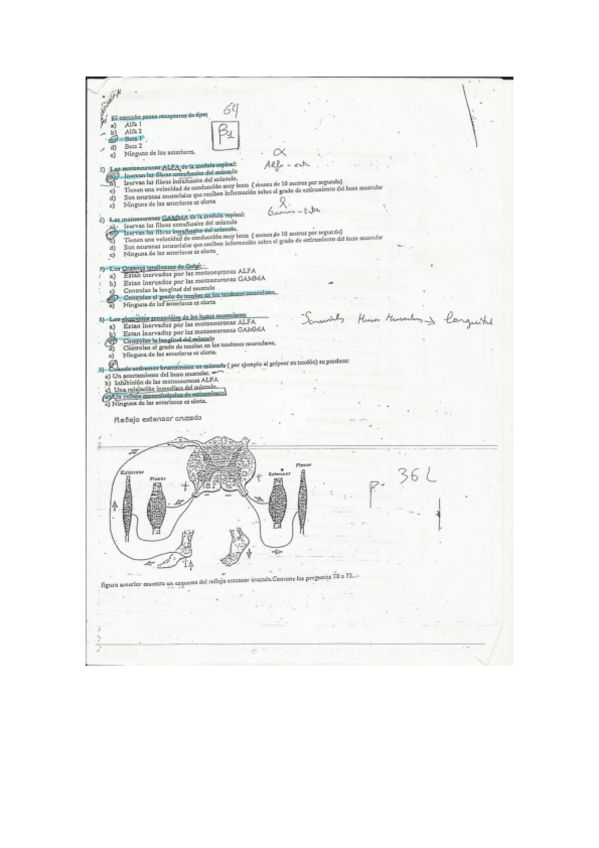 64
El corazón posee receptores de tipo:
a) Alfa 1
b) Alfa 2
Beta 1
β1
d) Beta 2
e) Ninguno de los anteriores.
α
Las motoneuronas ALFA de la medula espinal:
Alfa - extra
Inervan las fibras extrafusales del músculo
b) Inervan las fibras intrafusales del músculo.
c) Tienen una velocidad de conducción muy lenta ( menos de 10 metros por segundo)
d) Son neuronas sensoriales que reciben información sobre el grado de estiramiento del huso muscular
e) Ninguna de las anteriores es cierta
Las motoneuronas GAMMA de la medula espinal:
a) Inervan las fibras extrafusales del músculo
Inervan las fibras intrafusales del músculo.
c) Tienen una velocidad de conducción muy lenta ( menos de 10 metros por segundo)
d) Son neuronas sensoriales que reciben información sobre el grado de estiramiento del huso muscular
e) Ninguna de las anteriores es cierta
Los Órganos tendinosos de Golgi:
a) Están inervados por las motoneuronas ALFA
b) Están inervados por las motoneuronas GAMMA
c) Controlan la longitud del músculo
Controlan el grado de tensión en los tendones musculares
e) Ninguna de las anteriores es cierta
Los elementos sensoriales de los husos musculares:
a) Están inervados por las motoneuronas ALFA
b) Están inervados por las motoneuronas GAMMA
Controlan la longitud del músculo
d) Controlan el grado de tensión en los tendones musculares.
e) Ninguna de las anteriores es cierta.
Husos Musculares → Longuitud
Cuando estiramos bruscamente un músculo ( por ejemplo al golpear su tendón) se produce:
a) Un acortamiento del huso muscular.
b) Inhibición de las motoneuronas ALFA
c) Una relajación inmediata del músculo.
d) Un reflejo monosináptico de estiramiento.
e) Ninguna de las anteriores es cierta.
Reflejo extensor cruzado
Extensor
Flexor
Extensor
Flexor
+
+
p. 362
figura anterior muestra un esquema del reflejo extensor cruzado.Conteste las preguntas 70 a 73.